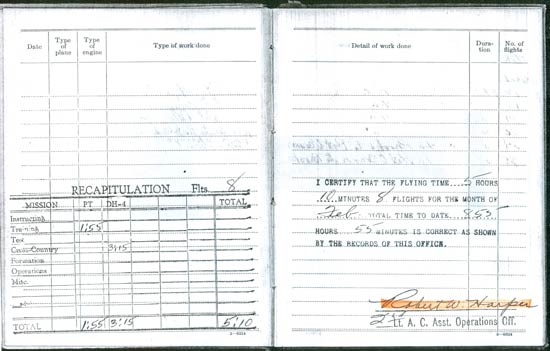 Date Type of plane Type of engine Type of work done
RECAPITULATION Flts. 8
MISSION PT DH-4 TOTAL
Instructing
Training 1:55
Test
Cross-Country 3:15
Formation
Operations
Misc.
TOTAL 1:55 3:15 5:10
Detail of work done Dura- tion No. of flights
I CERTIFY THAT THE FLYING TIME 5 HOURS
10 MINUTES 8 FLIGHTS FOR THE MONTH OF
Feb TOTAL TIME TO DATE 855
HOURS 55 MINUTES IS CORRECT AS SHOWN
BY THE RECORDS OF THIS OFFICE.
Robert W. Harper
2nd Lt. A. C. Asst. Operations Off.